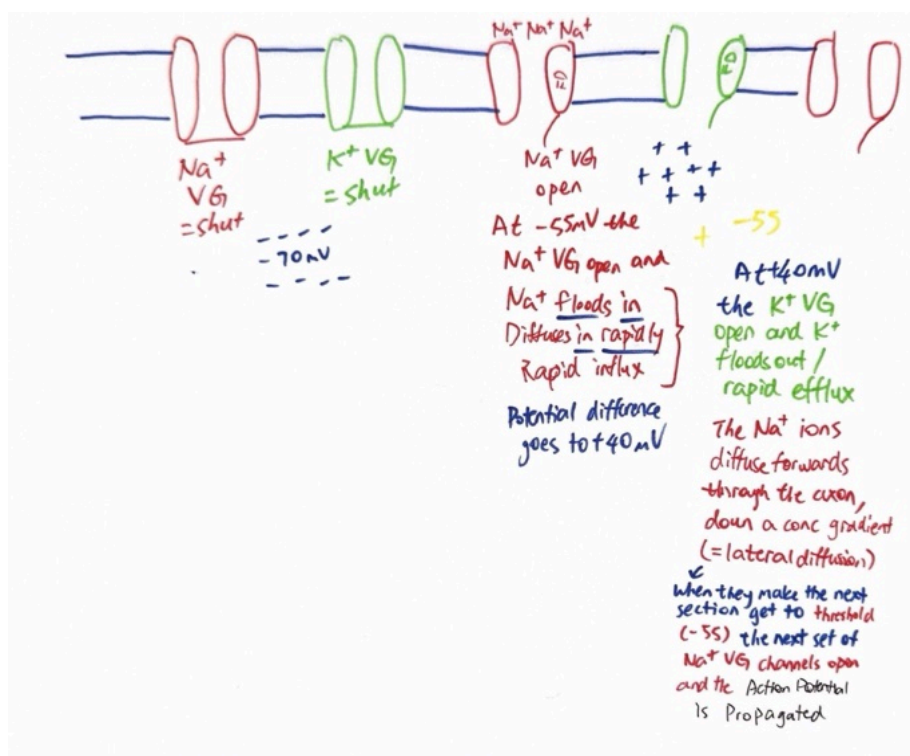 Na⁺ Na⁺ Na⁺
Na⁺
VG
=shut
K⁺ VG
=shut
- - - -
-70mV
- - - -
Na⁺ VG
open
At -55mV the
Na⁺ VG open and
Na⁺ floods in
Diffuses in rapidly
Rapid influx
Potential difference
goes to +40mV
+ +
+ + + + +
+ +
+ -55
At +40mV
the K⁺ VG
open and K⁺
floods out /
rapid efflux
The Na⁺ ions
diffuse forwards
through the axon,
down a conc gradient
(=lateral diffusion)
when they make the next
section get to threshold
(-55) the next set of
Na⁺ VG channels open
and the Action Potential
is Propagated